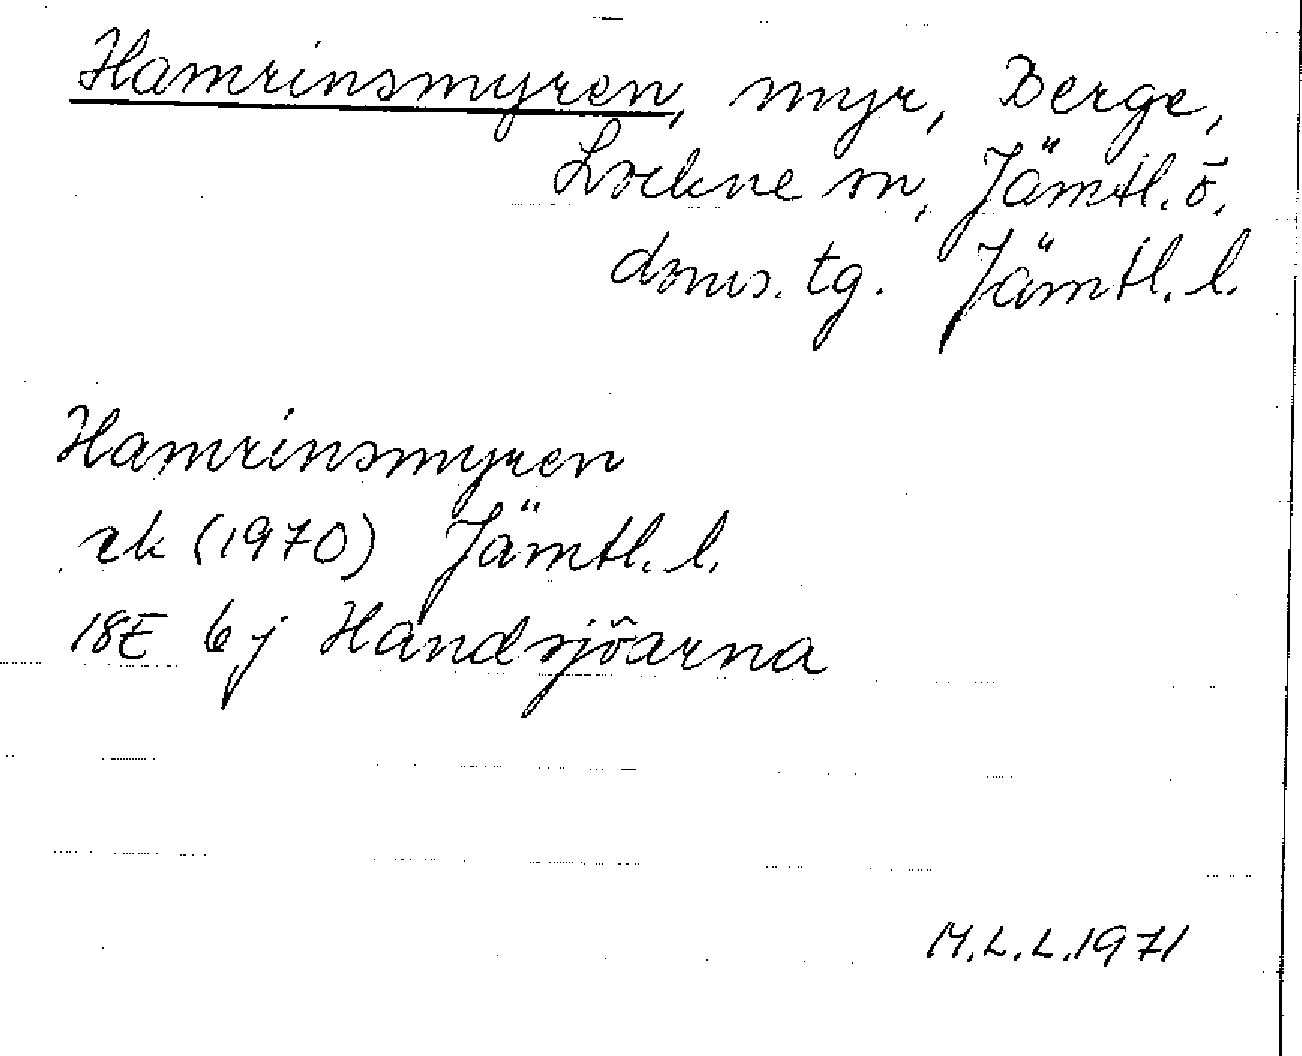 Hamrinsmyren, myr, Berge,
Lockne sn, Jämtl. ö.
doms. tg. Jämtl. l.
Hamrinsmyren
rk (1970) Jämtl. l.
18E 6j Handsjöarna
M.L.L. 1971